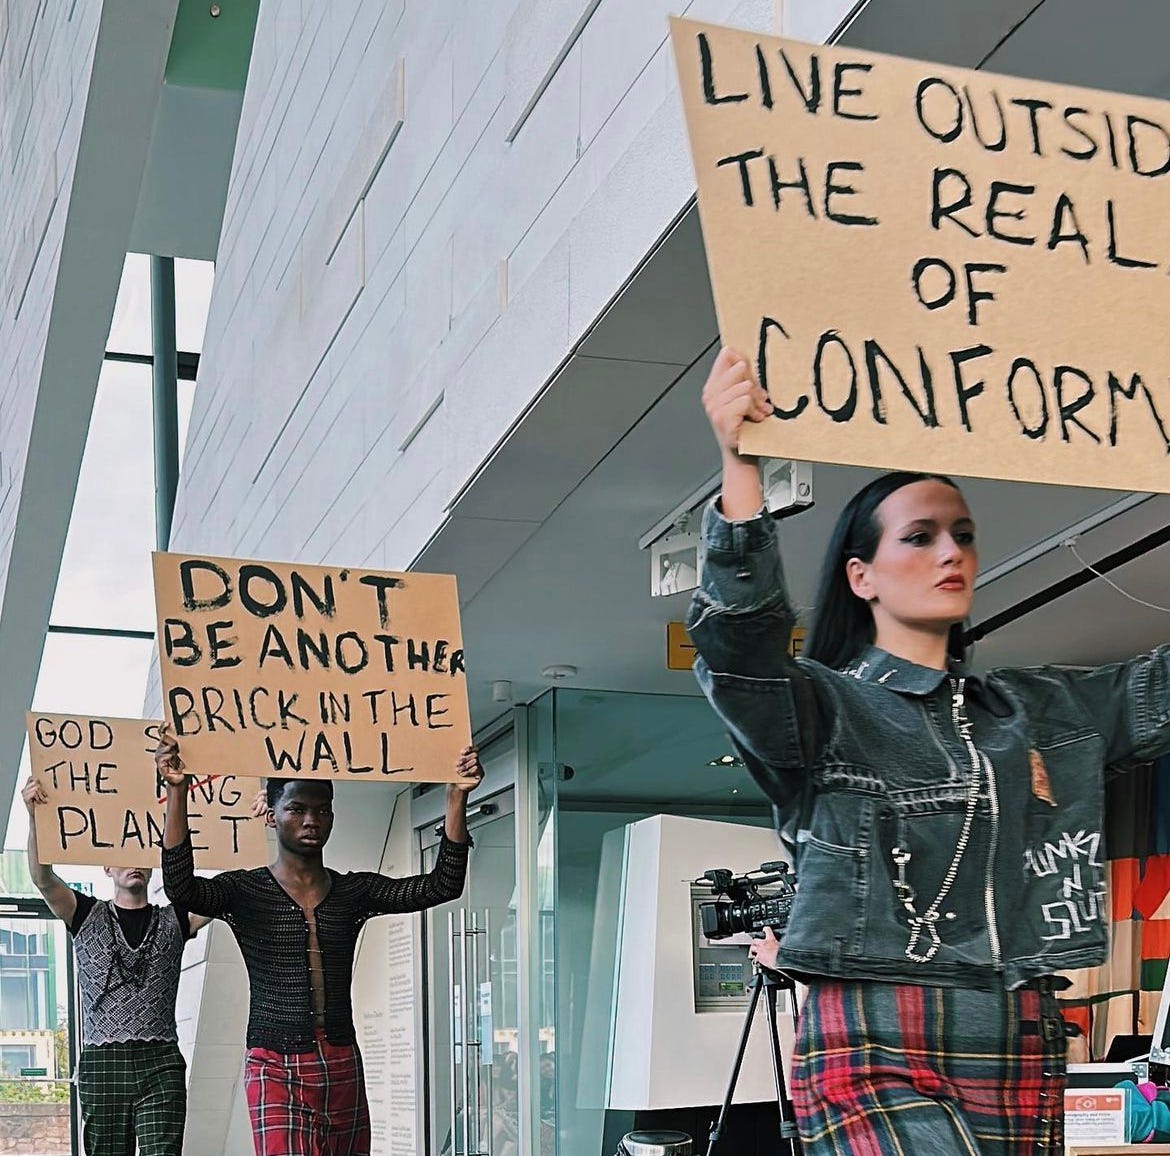 LIVE OUTSID
THE REAL
OF
CONFORM
DON'T
BE ANOTHER
BRICK IN THE
WALL
GOD S
THE KING
PLANET